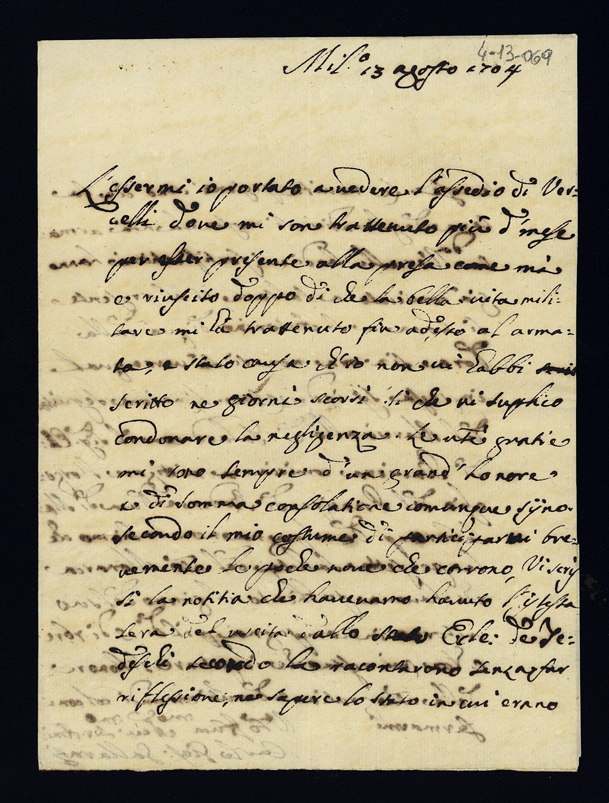 4-13-069
Mil.o 13 agosto 1704
L'essermi io portato a vedere l'assedio di Ver-
celli dove mi son trattenuto più d'un mese
per esser presente alla presa come mi
è riuscito doppo di che la bella vita mili-
tare mi hà trattenuto fin adesso al arma-
ta, è stato causa ch'io non vi habbi
scritto ne giorni scorsi si che vi suplico
condonare la negligenza. Le vre gratie
mi sono sempre d'un grand' honore
e di somma consolatione comunque
secondo il mio costume di participarvi bre-
vemente le poche nove che corrono, Vi scris
si la notitia che havevamo havuto l'istessa
sera del uscita dallo stato Eccle: de Te-
deschi secondo la raccontorono senza far
riflessione, ne sapere lo stato in cui erano
fermarmi